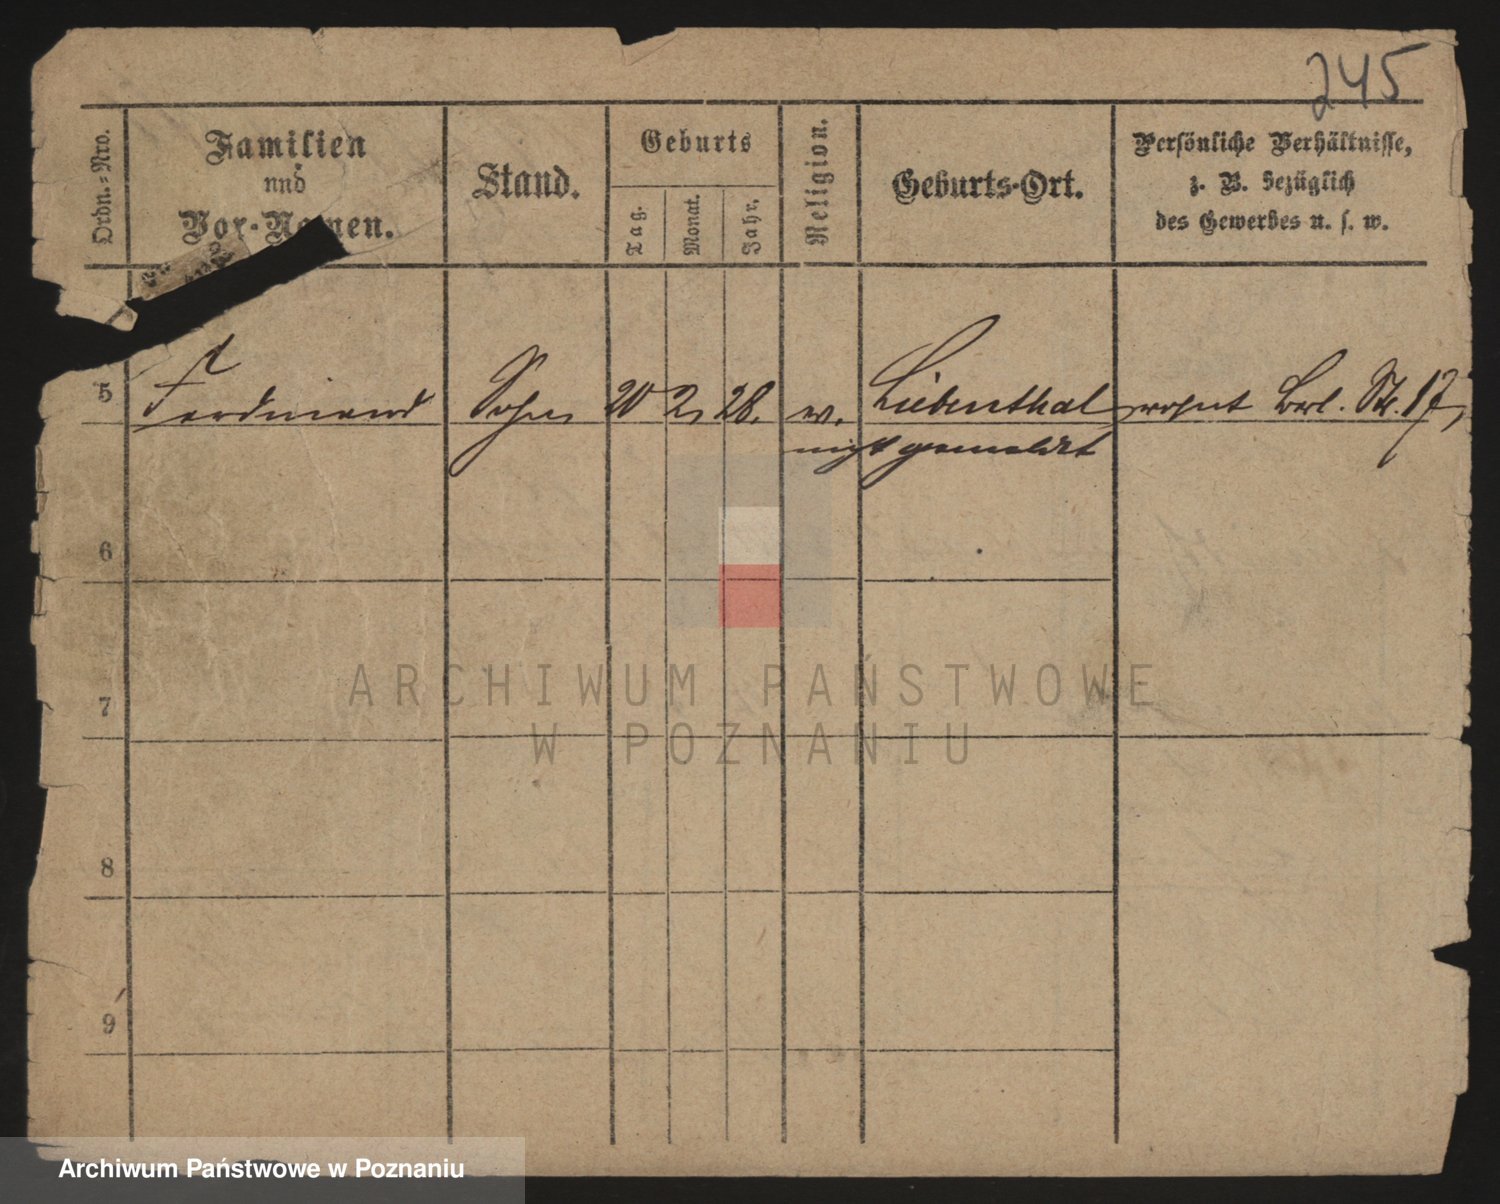 245
Ordn.-Nro.
Familien
und
Vor-Namen.
Stand.
Geburts
Tag.
Monat.
Jahr.
Religion.
Geburts-Ort.
Persönliche Verhältnisse,
z. B. bezüglich
des Gewerbes u. s. w.
5 Ferdinand Sohn 20 2 28. w. Liebenthal wohnt Berl. Str. 17,
nicht gemeldet
6
7
8
9
ARCHIWUM PAŃSTWOWE
W POZNANIU
Archiwum Państwowe w Poznaniu